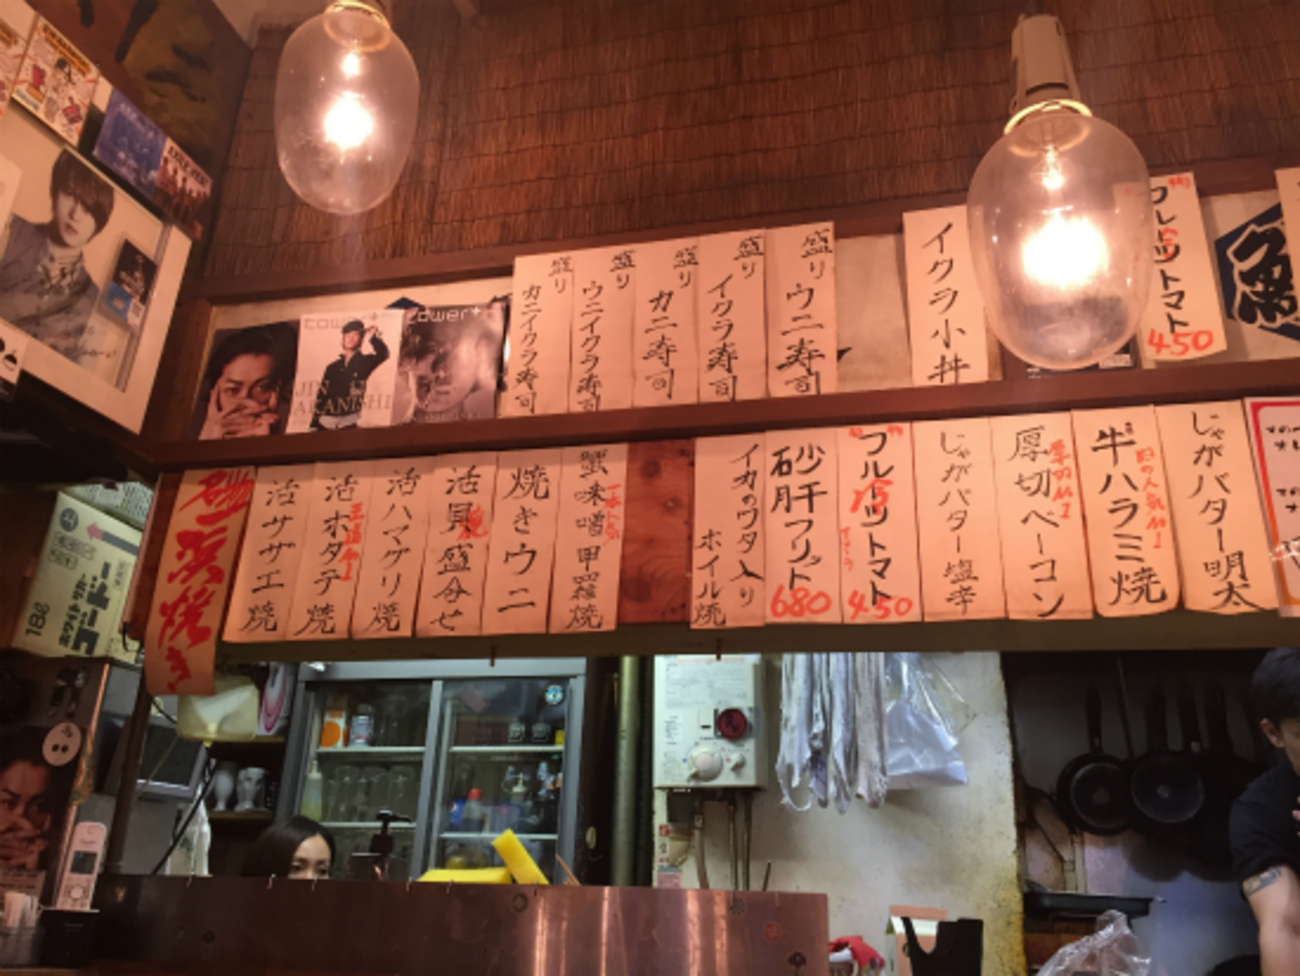 tower+
tower+
JIN
AKANISHI
盛り カニイクラ寿司
盛り ウニイクラ寿司
盛り カニ寿司
盛り イクラ寿司
盛り ウニ寿司
イクラ小丼
フルーツトマト
450
魚
浜焼き
活サザエ焼
活ホタテ焼
活ハマグリ焼
活貝盛合せ
焼きウニ
蟹味噌甲羅焼
イカのワタ入り
ホイル焼
フリット
680
冷
フルーツトマト
450
じゃがバター塩辛
厚切ベーコン
厚切No.1
牛ハラミ焼
じゃがバター明太
18ℓ